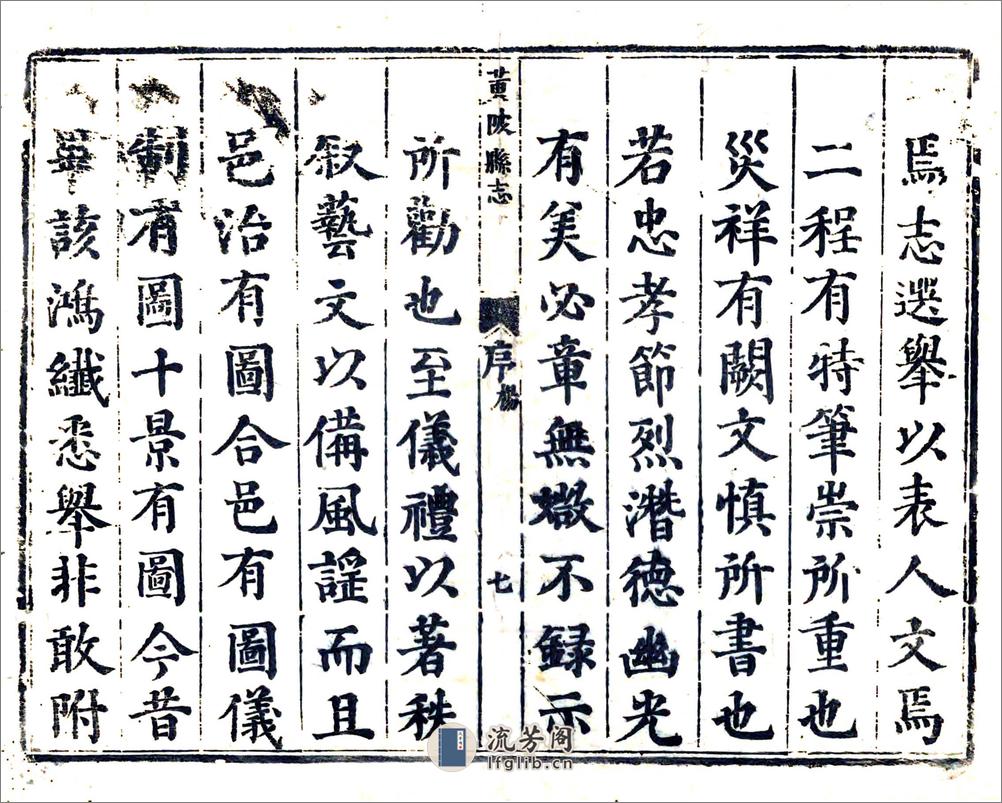 焉志選舉以表人文焉
二程有特筆崇所重也
災祥有闕文慎所書也
若忠孝節烈潛德幽光
有美必章無媺不録示
黄陂縣志
序
楊
七
所勸也至儀禮以著秩
叙藝文以備風謡而且
邑治有圖合邑有圖儀
制有圖十景有圖今昔
畢該鴻纖悉舉非敢附
流芳阁
lfglib.cn